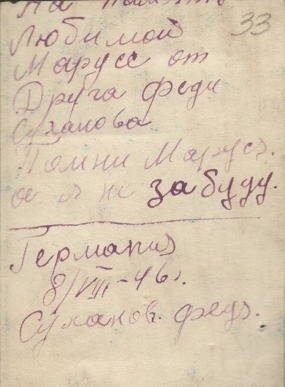 На память
33
Любимой
Марусе от
Друга Феди
Суханова
Помни Маруся.
а я не забуду.
Германия
8/VIII-46г.
Суханов. Федя.